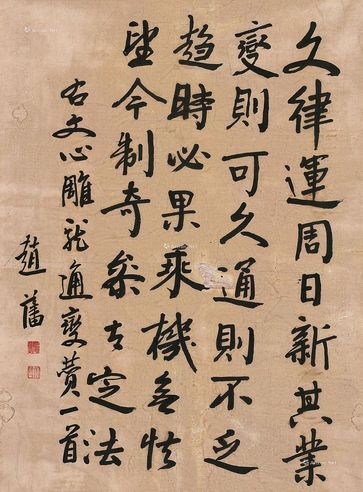 文律運周日新其業
變則可久通則不乏
趨時必果乘機無怯
望今制奇參古定法
右文心雕龍通變贊一首
趙藩